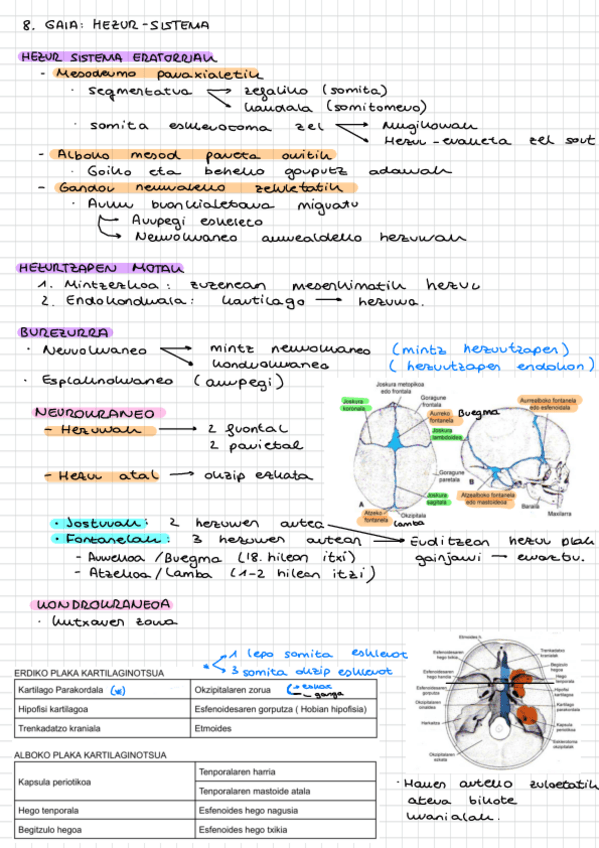 8. GAIA: HEZUR-SISTEMA
HEZUR SISTEMA ERATORRIAK
- Mesodermo paraxialetik
· segmentatua → zefaliko (somita)
→ kaudala (somitomero)
· somita esklerotoma zel → Mugikorrak
→ Hezur-eraketa zel sort
- Alboko mesod pareta oritik
· Goiko eta beheko gorputz adarrak
- Gandor neuraleko zeluletatik
· Arku brankialetara migratu
→ Aurpegi eskeleto
→ Neurokraneo aurrealdeko hezurrak
HEZURTZAPEN MOTAK
1. Mintzezkoa: zuzenean mesenkimatik hezur
2. Endokondrala: kartilago → hezurra.
BUREZURRA
· Neurokraneo → mintz neurokraneo (mintz hezurtzapen)
→ kondrokraneo (hezurtzapen endokon)
· Esplaknokraneo (aurpegi)
NEUROKRANEO
- Hezurrak → 2 frontal
2 parietal
- Hezur atal → okzip ezkata
Joskura metopikoa edo frontala
Joskura koronala
Goragune frontala
Aurreko fontanela
Bregma
Aurrealboko fontanela edo esfenoidala
Joskura lambdoidea
Goragune parietala
Joskura sagitala
Atzealboko fontanela edo mastoidea
A
B
Baraila
Maxilarra
Atzeko fontanela
Okzipitala
lamba
· Josturak: 2 hezurren artea
· Fontanelak: 3 hezurren artean → Erditzean hezur plak gainjarri → erraztu.
- Aurrekoa / Bregma (18. hilean itxi)
- Atzekoa / Lamba (1-2 hilean itzi)
KONDROKRANEOA
· kutxaren zona
1 lepo somita esklerot
3 somita okzip esklerot
ERDIKO PLAKA KARTILAGINOTSUA
Kartilago Parakordala
Okzipitalaren zorua
Hipofisi kartilagoa
Esfenoidesaren gorputza ( Hobian hipofisia)
Trenkadatzo kraniala
Etmoides
ALBOKO PLAKA KARTILAGINOTSUA
Kapsula periotikoa
Tenporalaren harria
Tenporalaren mastoide atala
Hego tenporala
Esfenoides hego nagusia
Begitzulo hegoa
Esfenoides hego txikia
Etmoides h.
Esfenoidesaren hego txikia
Esfenoidesaren hego handia
Esfenoidesaren gorputza
Okzipitalaren oinaldea
Harkaitza
Okzipitalaren ezkata
Trenkadatzo kraniala
Begitzulo hegoa
Hego tenporala
Hipofisi kartilagoa
Kartilago parakordala
Kapsula periotikoa
okzipitalak
· Hauen arteko zuloetatik
atera bikote
kranialak.